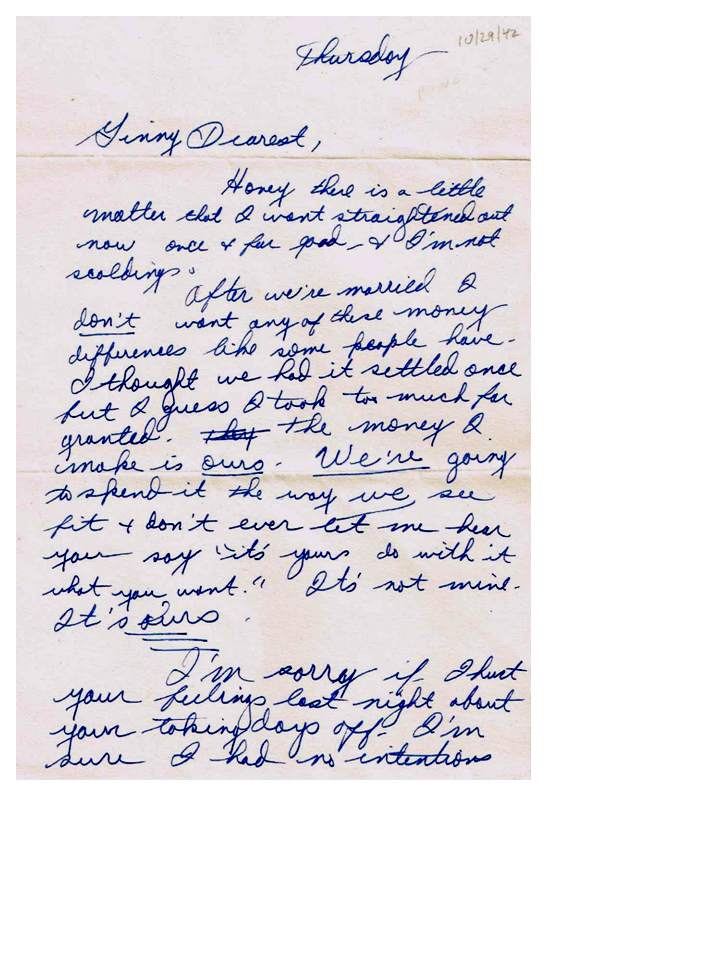 10/29/42
Thursday
Ginny Dearest,
Honey there is a little
matter that I want straightened out
now once & for good, & I'm not
scolding.
After we're married I
don't want any of these money
differences like some people have.
I thought we had it settled once
but I guess I took too much for
granted. they The money I
make is ours. We're going
to spend it the way we see
fit & don't ever let me hear
you say "it's yours do with it
what you want." It's not mine.
It's ours.
I'm sorry if I hurt
your feelings last night about
your taking days off. I'm
sure I had no intentions